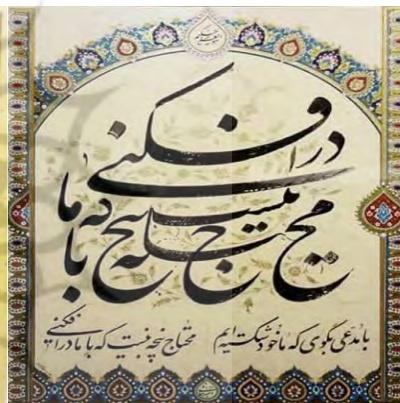 محتاج پنجه نیست که با ما درافکنی
با مدعی بگوی که ما خود شکسته ایم محتاج پنجه نیست که با ما درافکنی